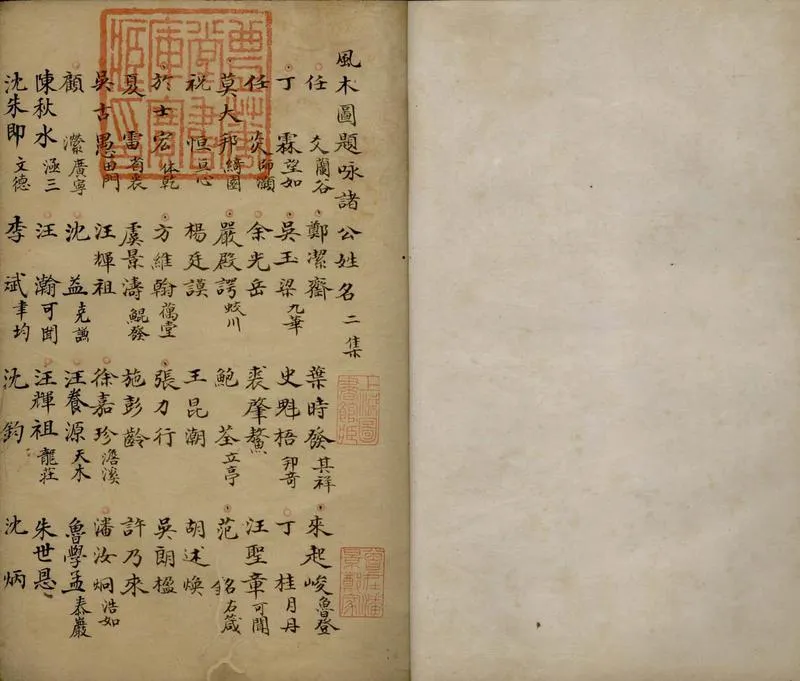 風木圖題咏諸公姓名二集
任 文蘭谷 鄭潔齋 葉時發其祥 來起峻魯登
丁 霖望如 吳玉梁九華 史魁梧邦奇 丁 桂月丹
任 炎師灝 余光岳 裘肇鰲 汪聖章可聞
莫大邦綺園 嚴殿諤蛟川 鮑 荃立亭 范 銘右箴
祝 恒亘心 楊廷謨 王昆潮 胡述煥
於士宏体乾 方維翰藹堂 張力行 吳朗楹
夏 雷省哀 虞景濤鯤發 施彭齡 許乃來
吳古愚田門 汪輝祖 徐嘉珍澹溪 潘汝炯浩如
顧 瀠廣寧 沈 益克謙 汪養源天木 魯學孟泰巖
陳秋水涵三 汪 瀚可聞 汪輝祖龍莊 朱世恩
沈朱即文德 李 斌聿均 沈 鈞 沈 炳
上海圖書館藏